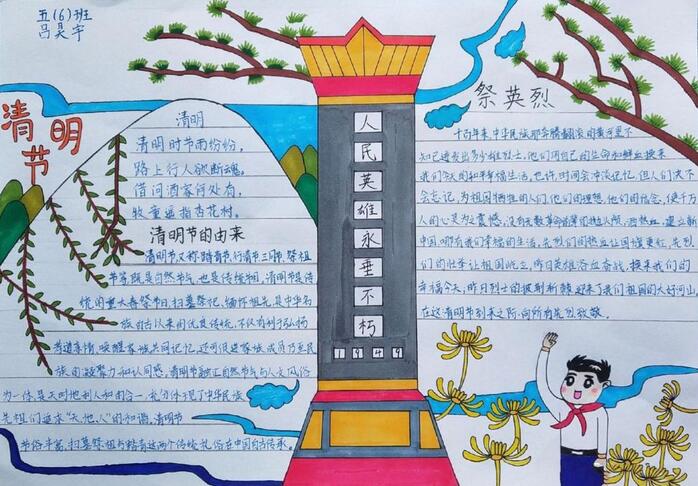 五(6)班
吕昊宇
清明节
清明
清明时节雨纷纷,
路上行人欲断魂。
借问酒家何处有,
牧童遥指杏花村。
清明节的由来
清明节又称踏青节、行清节、三月节、祭祖
节等,既是自然节气,也是传统节日,清明节是传
统的重大春祭节日,扫墓祭祀、缅怀祖先,是中华民
族自古以来的优良传统,不仅有利于弘扬
孝道亲情、唤醒家族共同记忆,还可促进家族成员乃至民
族的凝聚力和认同感。清明节融汇自然节气与人文风俗
为一体,是天时地利人和的合一,充分体现了中华民族
先祖们追求“天、地、人”的和谐,清明节
节俗丰富,扫墓祭祖与踏青这两个传统礼俗在中国自古传承。
人民英雄永垂不朽
1949
祭英烈
十百年来,中华民族那奔腾翻滚的黄河里不
知已迸发出多少雄烈士,他们用自己的生命和鲜血换来
我们今天的和平幸福生活,也许,时间会冲淡记忆,但人们决不
会忘记,为祖国牺牲的人们,他们的理想,他们的信念,使千万
人的心灵为之震撼,没有无数革命先辈的抛头颅、洒热血,建立新
中国,哪有我们幸福的生活,先烈们的热血让国旗更红,先烈
们的壮举让祖国屹立,昨日英雄浴血奋战,换来我们的
幸福今天;昨日烈士的披荆斩棘,迎来了我们祖国的大好河山,
在这清明节到来之际,向所有先烈致敬。